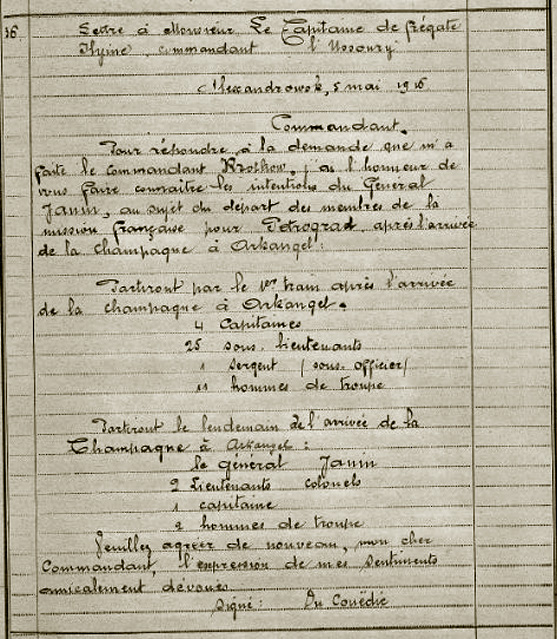 16 Lettre à Monsieur Le Capitaine de frégate
Ilyine, commandant l'Ussoury
Alexandrowsk, 5 mai 1916
Commandant,
Pour répondre à la demande que m'a
faite le commandant Krotkow, j'ai l'honneur de
vous faire connaitre les intentions du Général
Janin, au sujet du départ des membres de la
mission française pour Petrograd, après l'arrivée
de la Champagne à Arkangel:
Partiront par le 1er train après l'arrivée
de la Champagne à Arkangel.
4 Capitaines
25 sous-lieutenants
1 sergent (sous-officier)
11 hommes de troupe
Partiront le lendemain de l'arrivée de la
Champagne à Arkangel:
Le général Janin
2 Lieutenants colonels
1 capitaine
2 hommes de troupe
Veuillez agréer de nouveau, mon cher
Commandant, l'expression de mes sentiments
amicalement dévoués
Signé: Du Couëdic